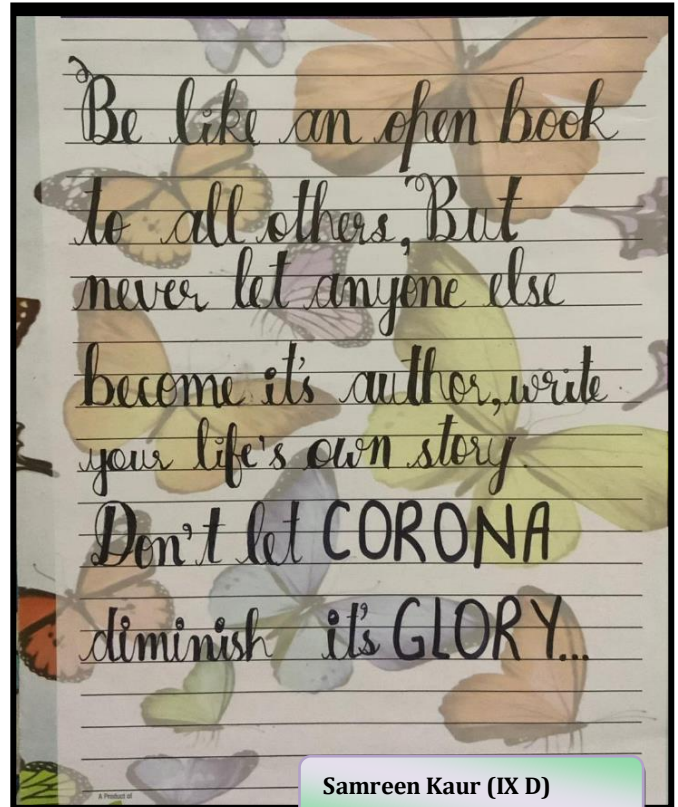 Be like an open book
to all others, But
never let anyone else
become it's author, write
your life's own story.
Don't let CORONA
diminish it's GLORY...
A Product of
Samreen Kaur (IX D)